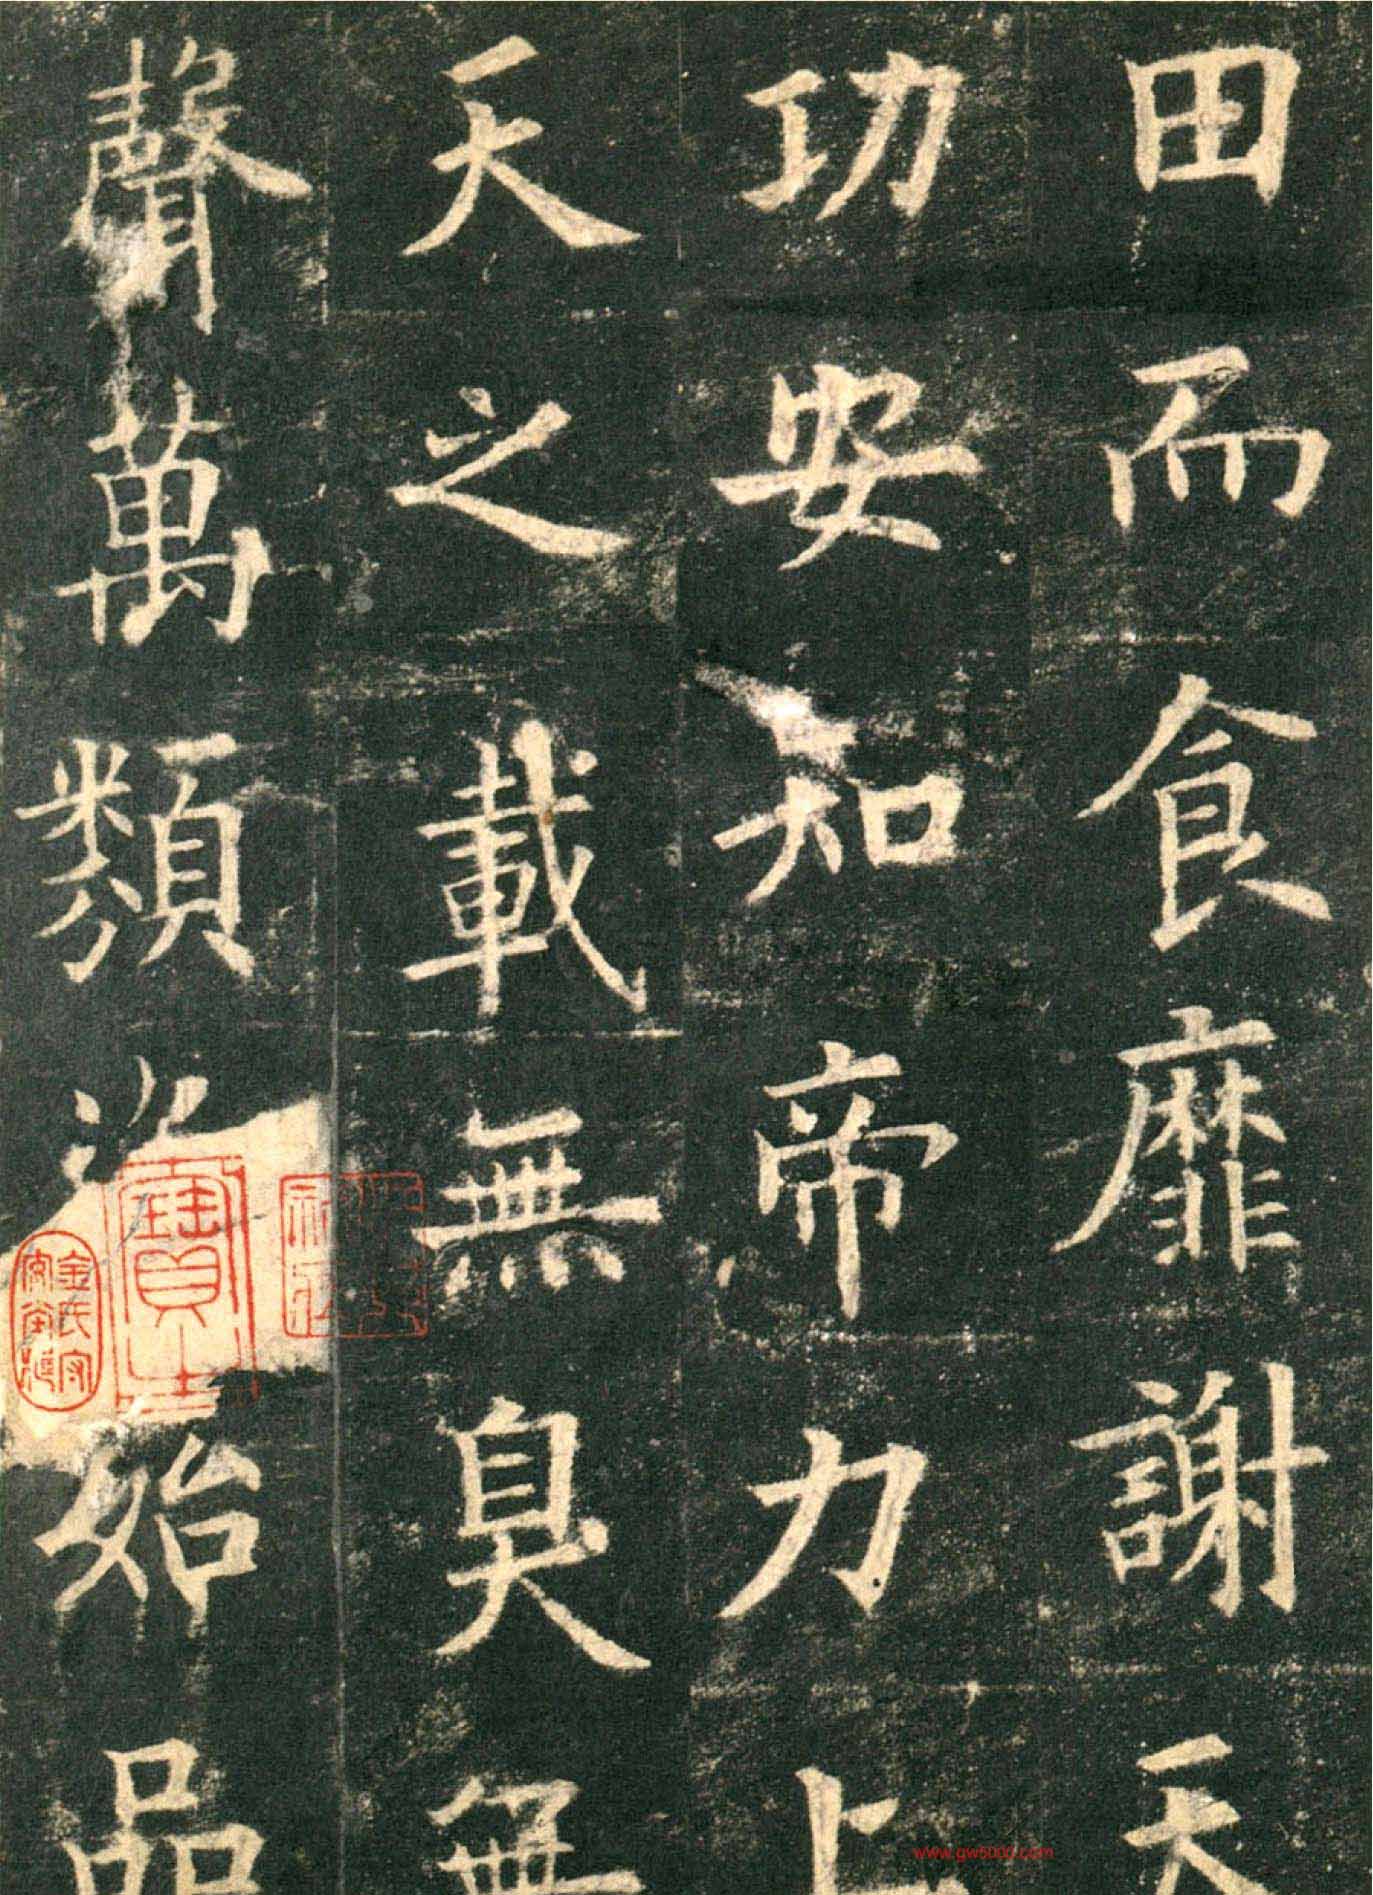 田而食靡謝天
功安知帝力上
天之載無臭無
聲萬類始品
www.gw5000.com